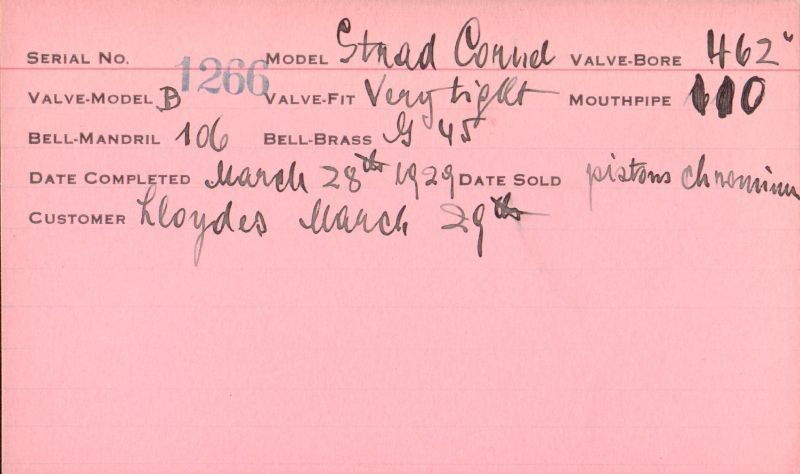 SERIAL NO. 1266 MODEL Strad Cornet VALVE-BORE 462"
VALVE-MODEL B VALVE-FIT Very tight MOUTHPIPE 10
BELL-MANDRIL 106 BELL-BRASS G 45
DATE COMPLETED March 28th 1929 DATE SOLD pistons chromium
CUSTOMER Lloydes March 29th